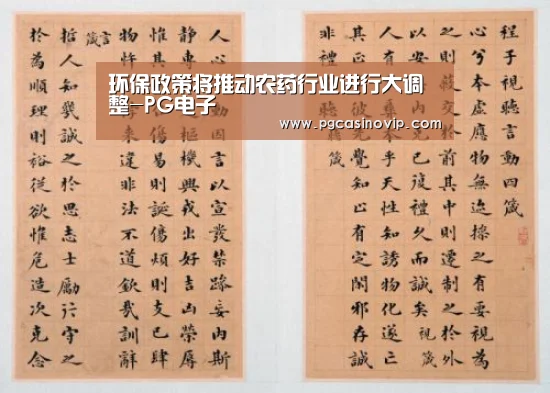 环保政策将推动农药行业进行大调
整-PG电子
www.pgcasinovip.com
程子視聽言動四箴
心兮本虛應物無迹操之有要視為
之則蔽交於前其中則遷制之於外
以安內克己復禮久而誠矣 視箴
人有本乎天性知誘物化遂亡
其正彼先覺知止有定閑邪存誠
非禮聽箴
人心動因言以宣發禁躁妄內斯
靜專樞機興戎出好吉凶榮辱
惟其傷易則誕傷煩則支己肆
物忤來違非法不道欽哉訓辭
言箴
哲人知幾誠之於思志士勵行守之
於為順理則裕從欲惟危造次克念